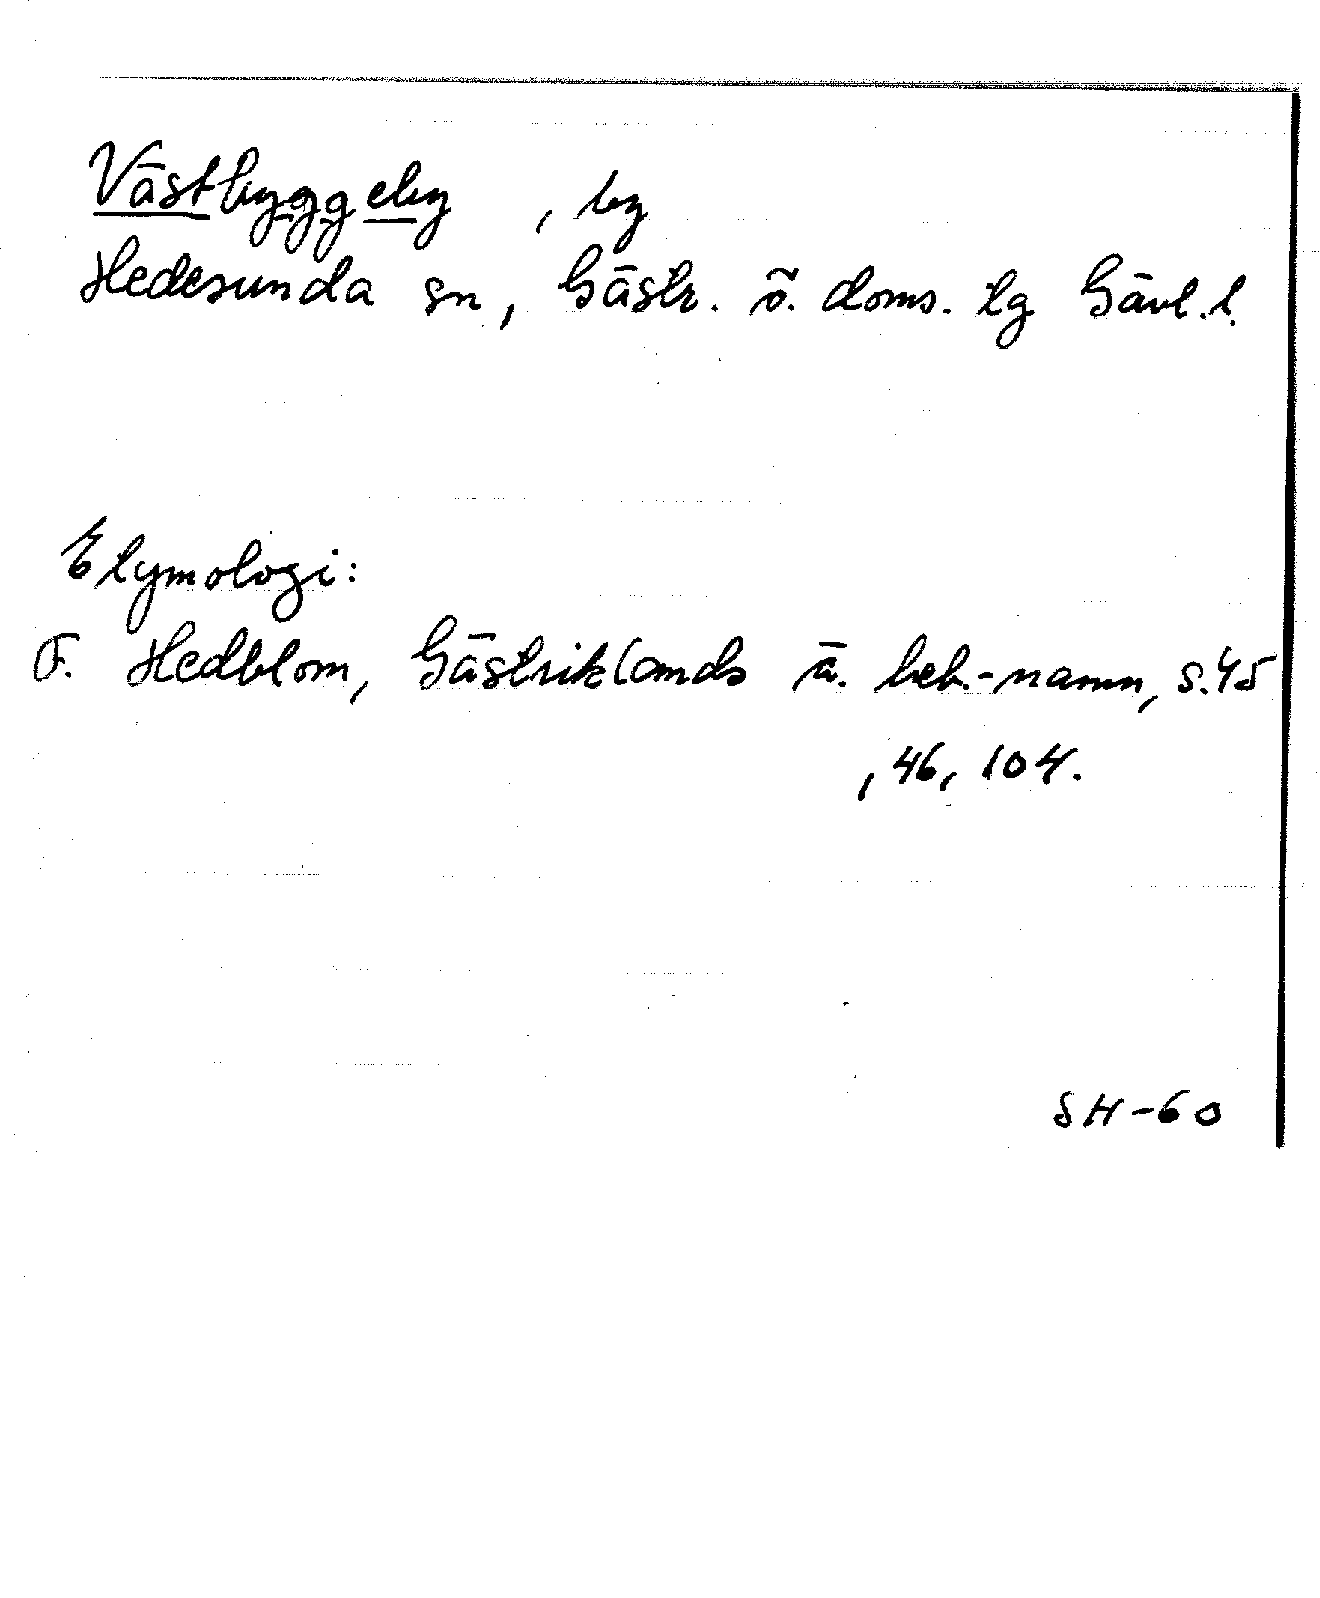 Västbyggeby, by
Hedesunda sn, Gästr. ö. doms. tg Gävl. l.
Etymologi:
F. Hedblom, Gästriklands ä. beb.-namn, s. 45
, 46, 104.
SH-60